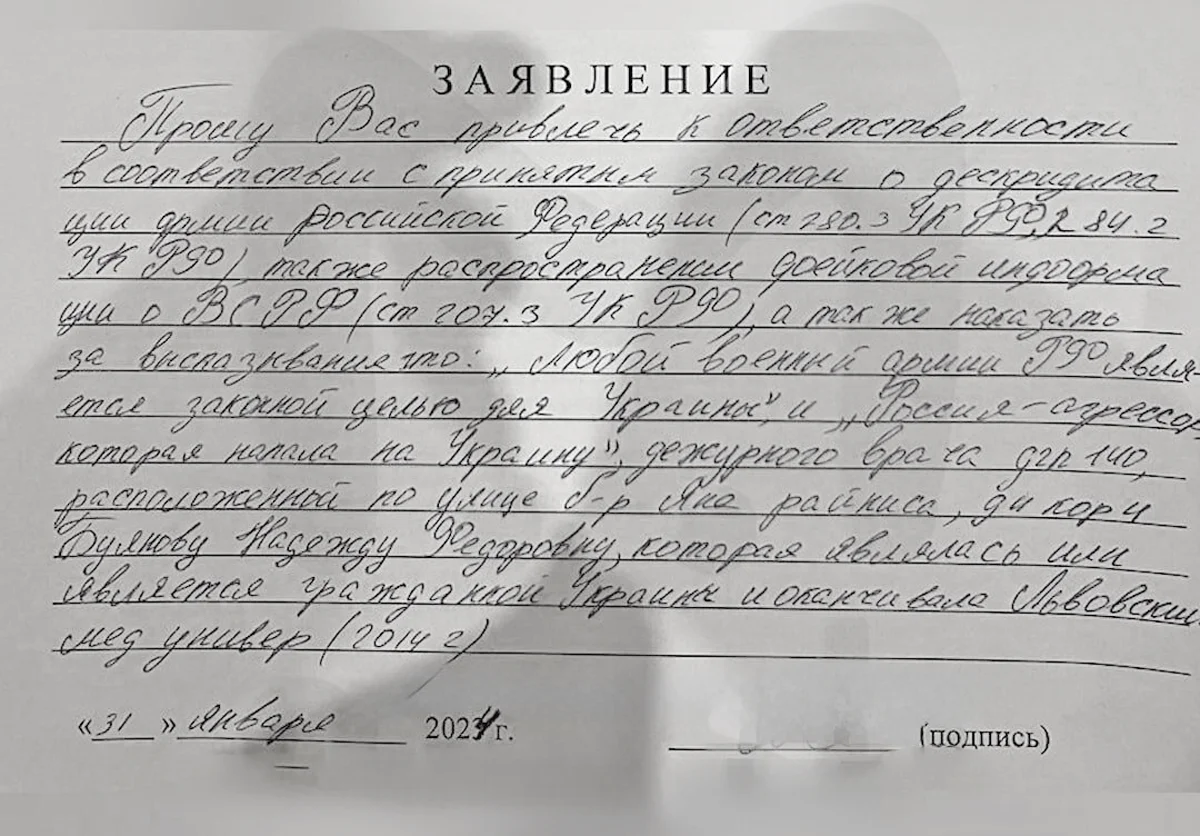 ЗАЯВЛЕНИЕ
Прошу Вас привлечь к ответственности
в соответствии с принятым законом о дескридита
ции армии Российской Федерации (ст 280.3 УК РФ, 284.2
УК РФ) также распространении фейковой информа
ции о ВСРФ (ст 207.3 УК РФ), а так же наказать
за высказывание что: „Любой военный армии РФ явля-
ется законной целью для Украины", и „Россия-агрессор
которая напала на Украину", дежурного врача дгп 140,
расположенной по улице б-р Яна райниса, д4 кор4
Буянову Надежду Федоровну, которая являлась или
является гражданкой Украины и оканчивала Львовский
мед универ (2014 г)
«31» января 2024 г.
(подпись)